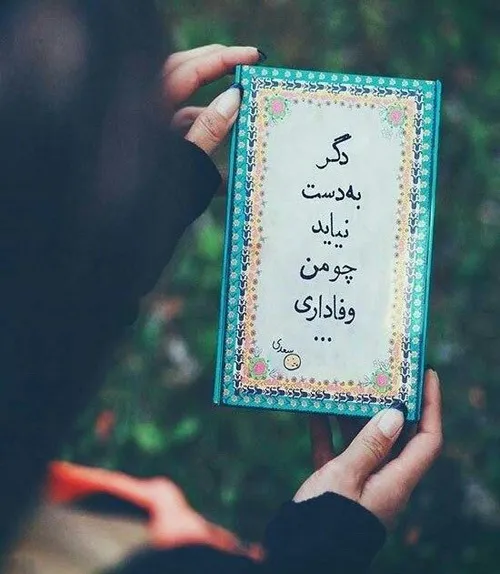 دگر
به دست
نیاید
چو من
وفاداری
...
سعدی